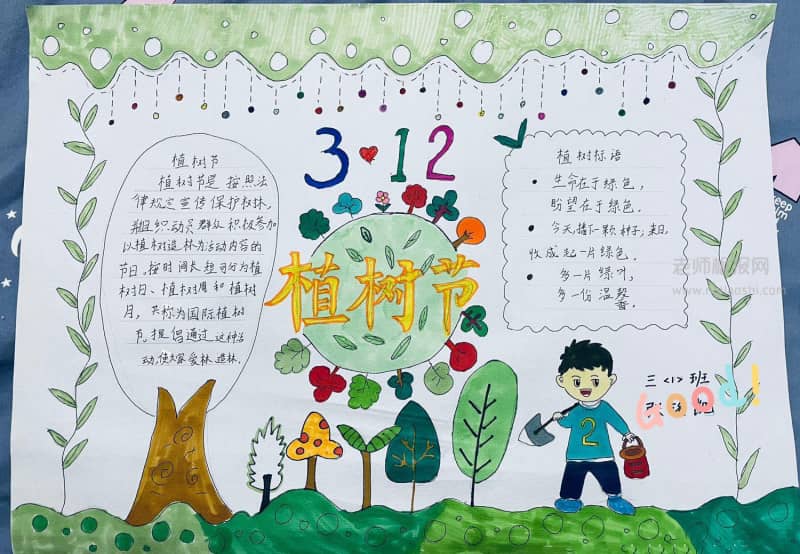 3·12
植树节
植树节
植树节是 按照法
律规定宣传保护树林,
并组织动员群众积极参加
以植树造林为活动内容的
节日。按时间长短可分为植
树日、植树周和植树
月,共称为国际植树
节。提倡通过 这种活
动,使大家爱林造林.
植树标语
生命在于绿色,
盼望在于绿色.
今天播下一颗种子,来日
收成起一片绿色.
多一片绿叶,
多一份温馨
三<1>班
Good!
2
老师板报网